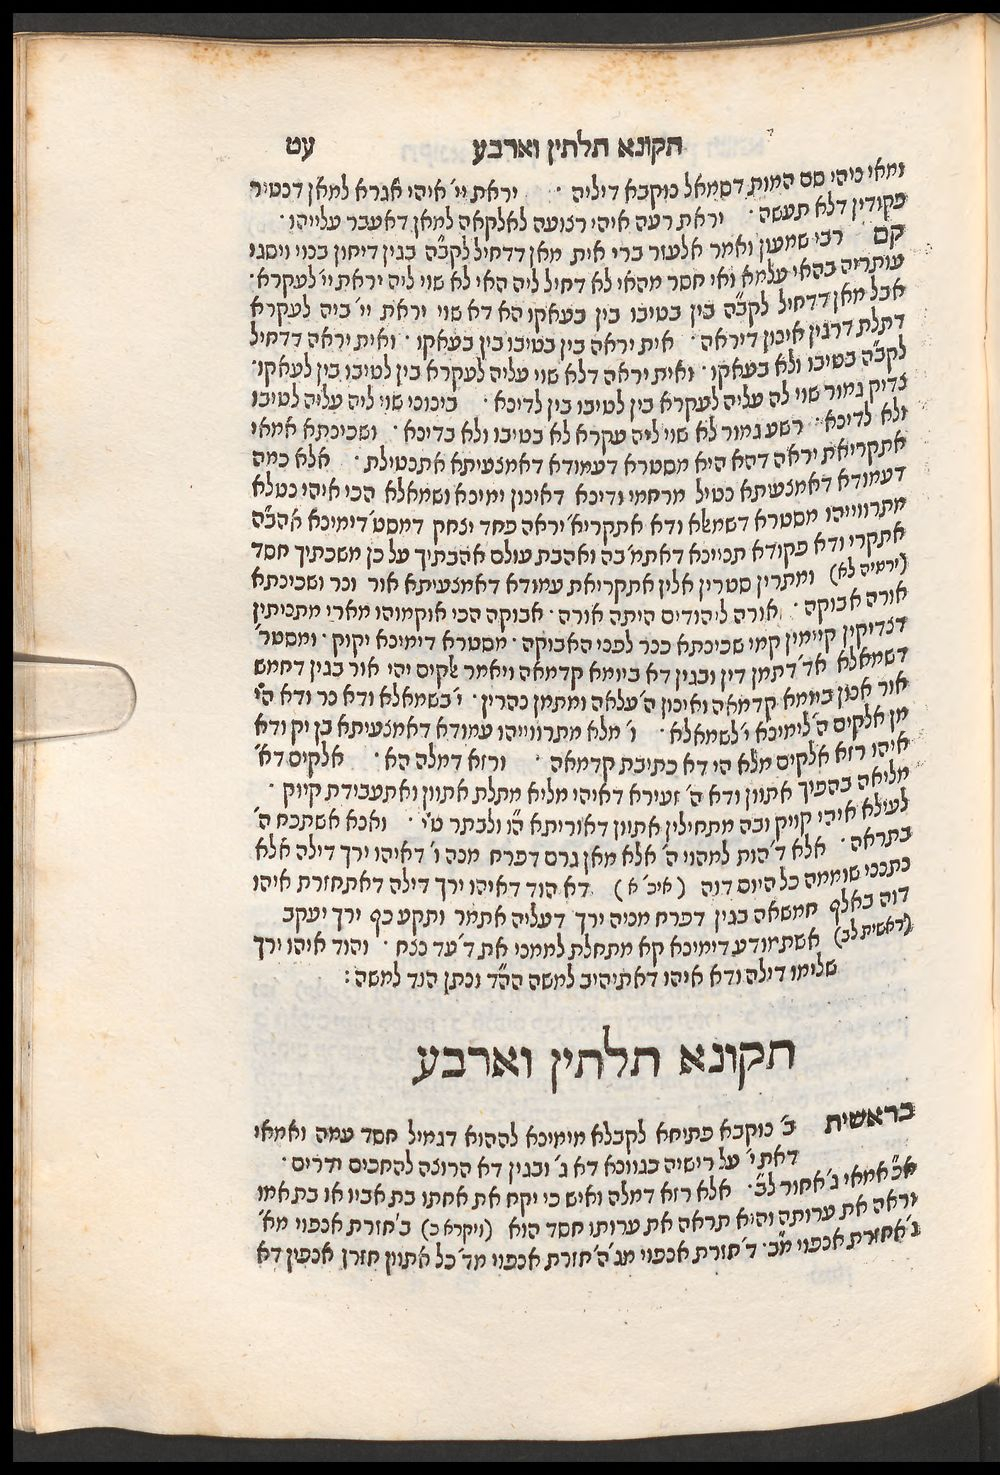 תקונא תלתין וארבע עט
ומאי ניהי סם המות דסמאל כוקבא דיליה · יראת יי' איהי אגרא למאן דנטיר
פקודין דלא תעשה · יראת רעה איהי רצועה לאלקאה למאן דאעבר עלייהו ·
קם רבי שמעון ואמר אלעזר ברי אית מאן דדחיל לקב"ה בגין דיחון בנוי ויסגי
עותריה בהאי עלמא ואי חסר מהאי לא דחיל ליה האי לא שוי ליה יראת יי' לעקרא ·
אבל מאן דדחיל לקב"ה בין בטיבו בין בעאקו הא דא שוי יראת יי' ביה לעקרא
דתלת דרגין אינון דיראה · אית יראה בין בטיבו בין בעאקו · ואית יראה דדחיל
לקב"ה בטיבו ולא בעאקו · ואית יראה דלא שוי עליה לעקרא בין לטיבו בין לעאקו ·
צדיק גמור שוי לה עליה לעקרא בין לטיבו בין לדינא · בינוני שוי ליה עליה לטיבו
ולא לדינא · רשע גמור לא שוי ליה עקרא לא בטיבו ולא בדינא · ושכינתא אמאי
אתקריאת יראה דהא היא מסטרא דעמודא דאמצעיתא אתנטילת · אלא כמה
דעמודא דאמצעיתא נטיל מרחמי ודינא דאינון ימינא ושמאלא הכי איהי נטלא
מתרווייהו מסטרא דשמאלא ודא אתקריא' יראה פחד יצחק דמסט' דימינא אהב"ה
אתקרי ודא פקודא תניינא דאתמ' בה ואהבת עולם אהבתיך על כן משכתיך חסד
(ירמיה לא) ומתרין סטרין אלין אתקריאת עמודא דאמצעיתא אור ונר ושכינתא
אורה אבוקה · אורה ליהודים היתה אורה · אבוקה הכי אוקמוהו מארי מתניתין
דצדיקין קיימין קמי שכינתא כנר לפני האבוקה · מסטרא דימינא יקוק · ומסטר'
דשמאלא אד' דתמן דין ובגין דא ביומא קדמאה ויאמר אלקים יהי אור בגין דחמש
אור אנון ביומא קדמאה ואינון ה' עלאה ומתמן נהרין · י' בשמאלא ודא נר ודא ה"י
מן אלקים ה' לימינא י' לשמאלא · ו' מלא מתרווייהו עמודא דאמצעיתא בן יק ודא
איהו רזא אלקים מלא הי דא כתיבת קדמאה · ורזא דמלה הא · אלקים דא
מליאה בהפיך אתוון ודא ה' זעירא דאיהי מליא מתלת אתוון ואתעבידת קיוק ·
לעילא איהי קויק ובה מתחילין אתיון דאוריתא ה"ו ולבתר ט"י · ואנא אשתכח ה'
בתראה · אלא ד' הות למהוי ה' אלא מאן גרם דפרח מנה ו' דאיהו ירך דילה אלא
נתנני שוממה כל היום דוה (איכ' א) דא הוד דאיהו ירך דילה דאתחזרת איהו
דוה באלף חמשאה בגין דפרח מניה ירך דעליה אתמר ותקע כף ירך יעקב
(ראשית לב) אשתמודע דימינא קא מתחלת לממני את ד' עד נצח · והוד איהו ירך
שלימו דילה ודא איהו דאתיהיב למשה הה"ד ונתן הוד למשה :
תקונא תלתין וארבע
בראשית ב' נוקבא פתיחא לקבלא מימינא לההוא דגמיל חסד עמה ואמאי
דאת י' על רישיה כגוונא דא ב' ובגין דא הרוצה להחכים ידרים ·
א"כ אמאי ג' אחור לב · אלא רזא דמלה ואיש כי יקח את אחתו בת אביו או בת אמו
וראה את ערותה והיא תראה את ערותו חסד הוא (ויקרא כ) ב' חזרת אנפוי מא'
ג' אחזרת אנפוי מב · ד' חזרת אנפוי מג ה' חזרת אנפוי מד' כל אתוון חזרן אנפין דא